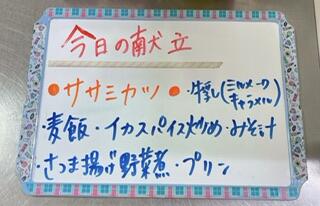 今日の献立
・ササミカツ ・牛乳(ミルメーク
キャラメル)
・麦飯・イカスパイス炒め・みそ汁
・さつま揚げ野菜煮・プリン